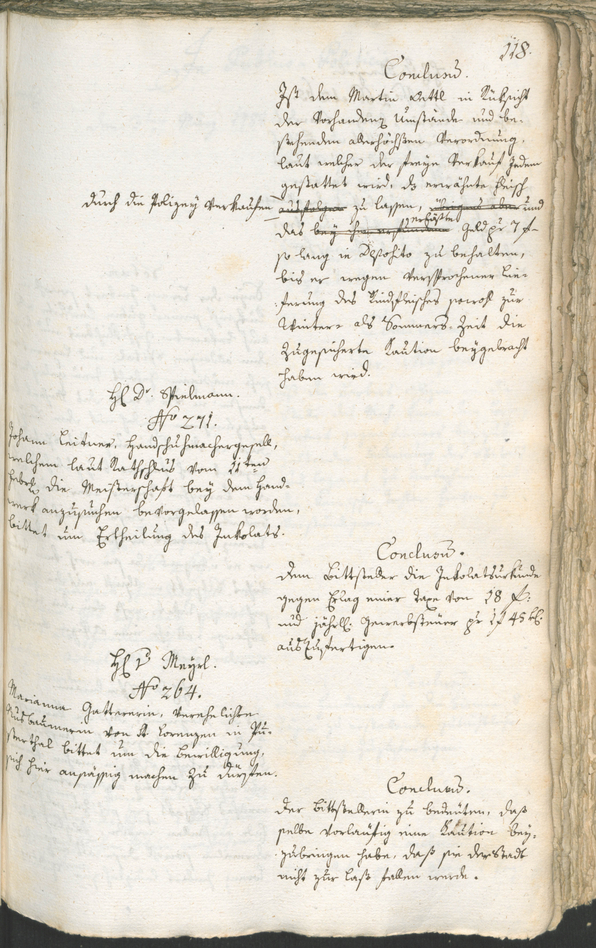 118.
Conclusum.
Ist dem Martin Oettl in Rüksicht
der Vorhandenen Umstände und be-
stehenden allerhöchsten Verordnung,
laut welcher der freye Verkauf Jedem
gestattet wird, das erwähnte Fleisch
durch die Polizey verkaufen ausfolgen zu lassen, übrigens aber und
das bey ihm erhobene Geld pr 7 f
so lang in Deposito zu behalten,
bis er wegen versprochener Lie-
ferung des Rindfleisches sowohl zur
Winters als Sommers-Zeit die
Zugesicherte Kaution beygebracht
haben wird.
H. Dr. Spielmann.
No 271.
Johann Leitner, Handschuhmachergesell,
welchem laut Rathschluß vom 11ten
die Meisterschaft bey dem Hand-
werk anzusuchen bevorgelassen worden,
bittet um Ertheilung des Inkolats.
Conclusum.
Dem Bittsteller die Inkolatsurkunde
gegen Erlag einer Taxe von 18 f:
und jährl. Gewerbsteuer pr 1 f 45 kr.
auszufertigen.
H. Meyrl.
No 264.
Marianna Gattererin, verehelichte
Nusbaumerin von St Lorenzen in Pu-
sterthal bittet um die Bewilligung,
sich hier ansässig machen zu dürfen.
Conclusum.
Der Bittstellerin zu bedeuten, daß
selbe vorläufig eine Kaution bey-
zubringen habe, daß sie der Stadt
nicht zur Last fallen werde.